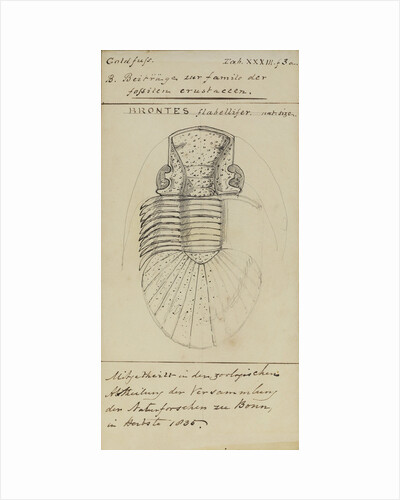 Goldfuss. Tab. XXXIII. f 3 a.
B. Beiträge zur famils der
fossilen crustaceen.
BRONTES flabellifer. nat: size.
Mitgetheilt in den zoologischen
Abtheilung der Versammlung
der Naturforschen zu Bonn,
in Herbste 1835.